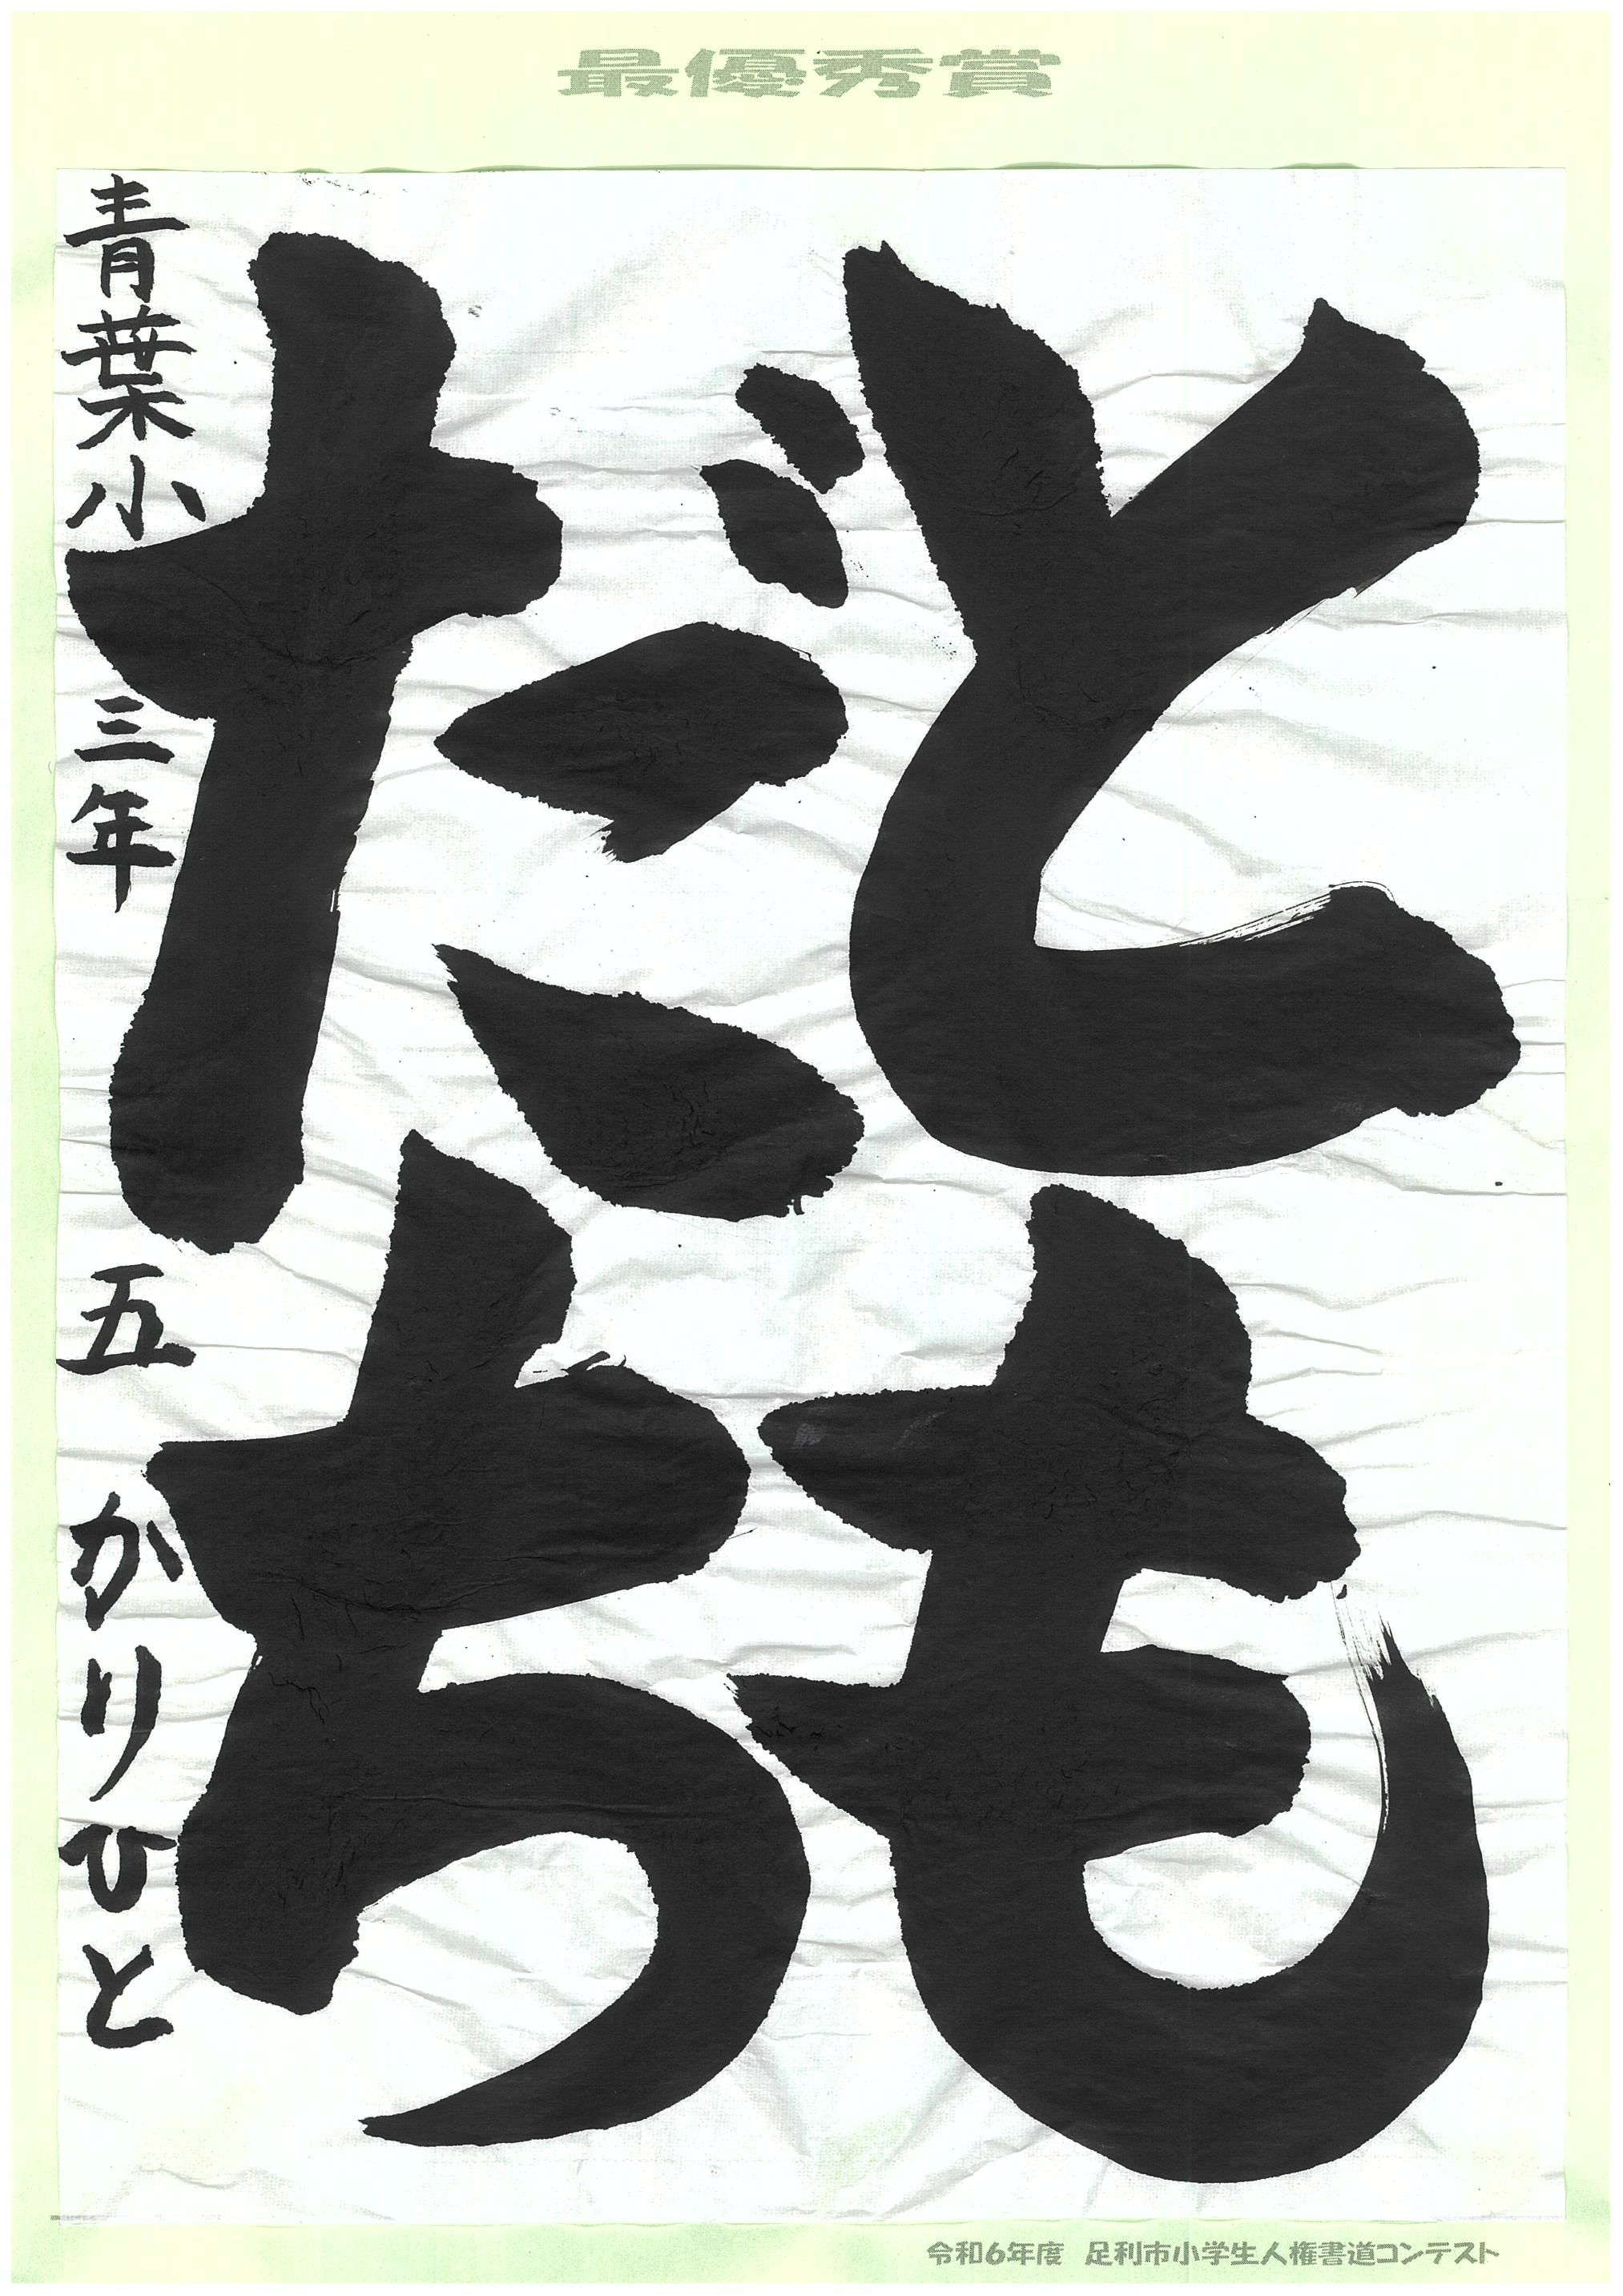 最優秀賞
とも
だち
青葉小 三年 五 かりひと
令和6年度 足利市小学生人権書道コンテスト